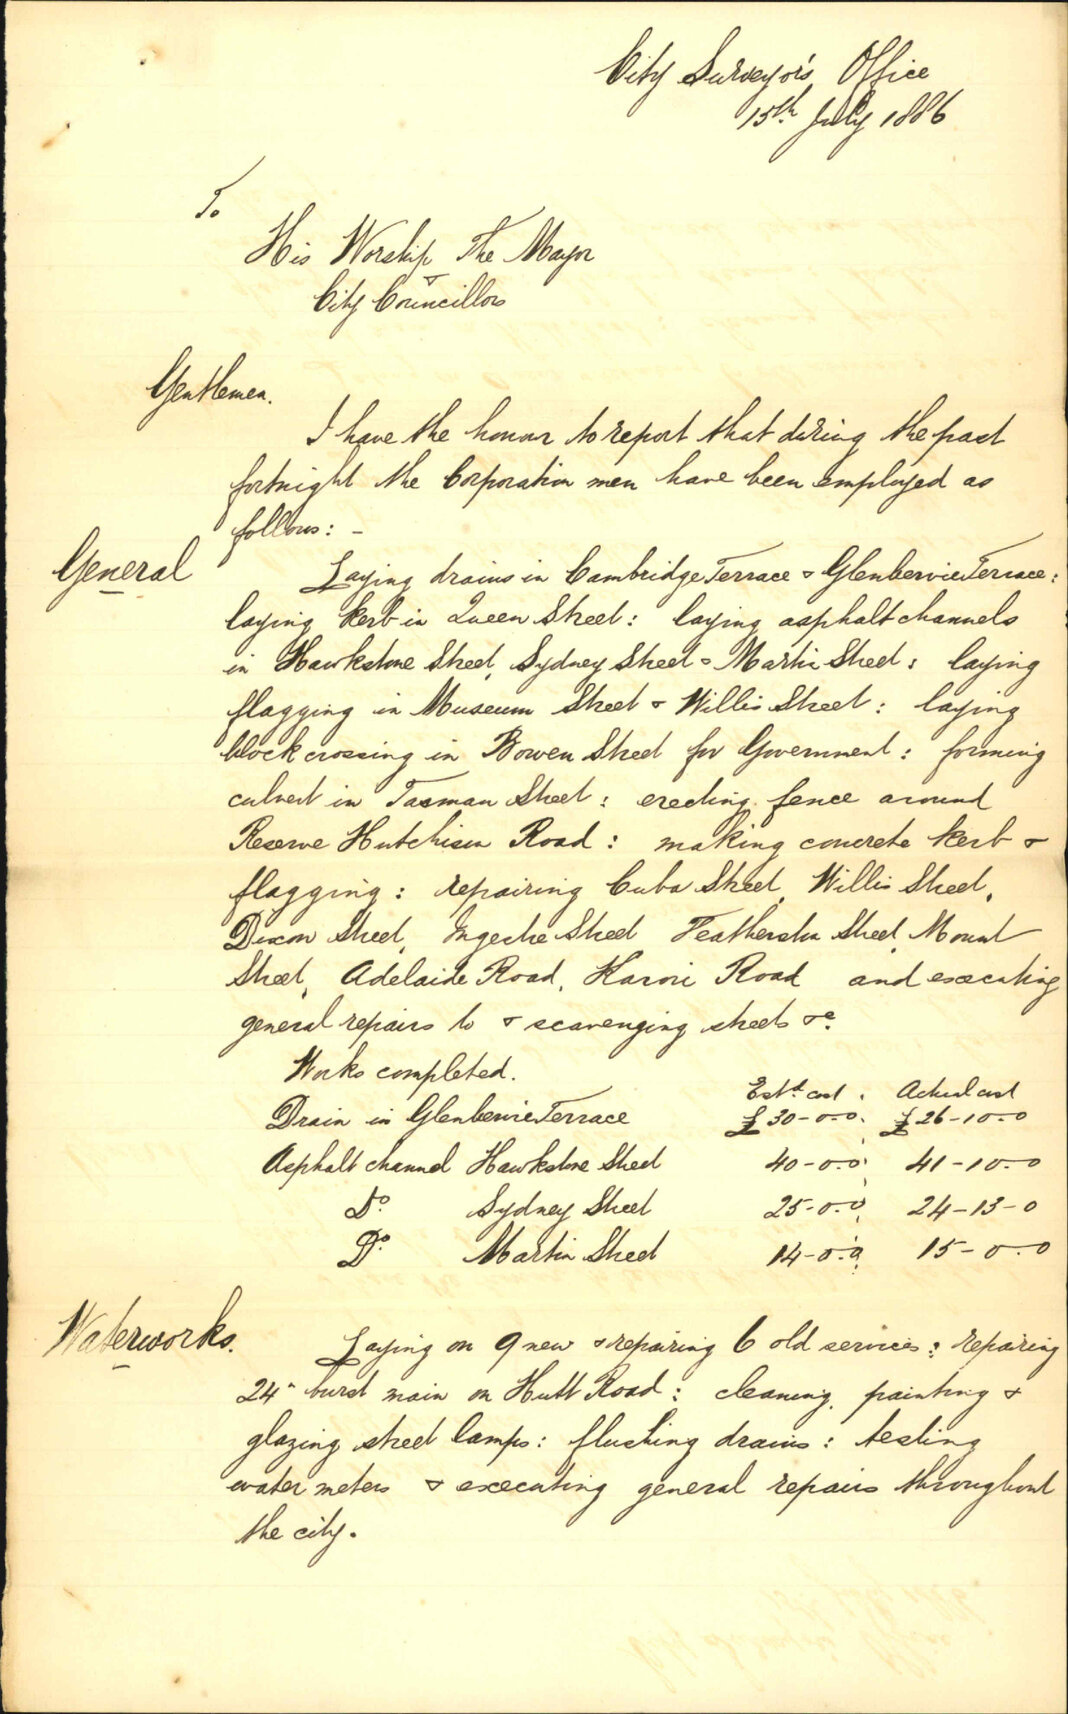 City Surveyor's Office
15th July 1886
To
His Worship The Mayor
&
City Councillors
Gentlemen.
I have the honor to report that during the past
fortnight the Corporation men have been employed as
follows: -
General
Laying drains in Cambridge Terrace & Glenbervie Terrace:
laying kerb in Queen Street: laying asphalt channels
in Hawkstone Street, Sydney Street & Martin Street: laying
flagging in Museum Street & Willis Street: laying
block crossing in Bowen Street for Government: forming
culvert in Tasman Street: erecting fence around
Reserve Hutchison Road: making concrete kerb &
flagging: repairing Cuba Street, Willis Street,
Dixon Street, Ingestre Street Featherston Street, Mount
Street, Adelaide Road, Karori Road and executing
general repairs to & scavenging streets &c.
Works completed.
Estd. cost. Actual cost
Drain in Glenbervie Terrace £30-0-0 £26-10-0
Asphalt channel Hawkstone Street 40-0-0 41-10-0
Do. Sydney Street 25-0-0 24-13-0
Do. Martin Street 14-0-0 15-0-0
Waterworks.
Laying on 9 new & repairing 6 old services: repairing
24" burst main on Hutt Road: cleaning, painting &
glazing street lamps: flushing drains: testing
water meters & executing general repairs throughout
the city.